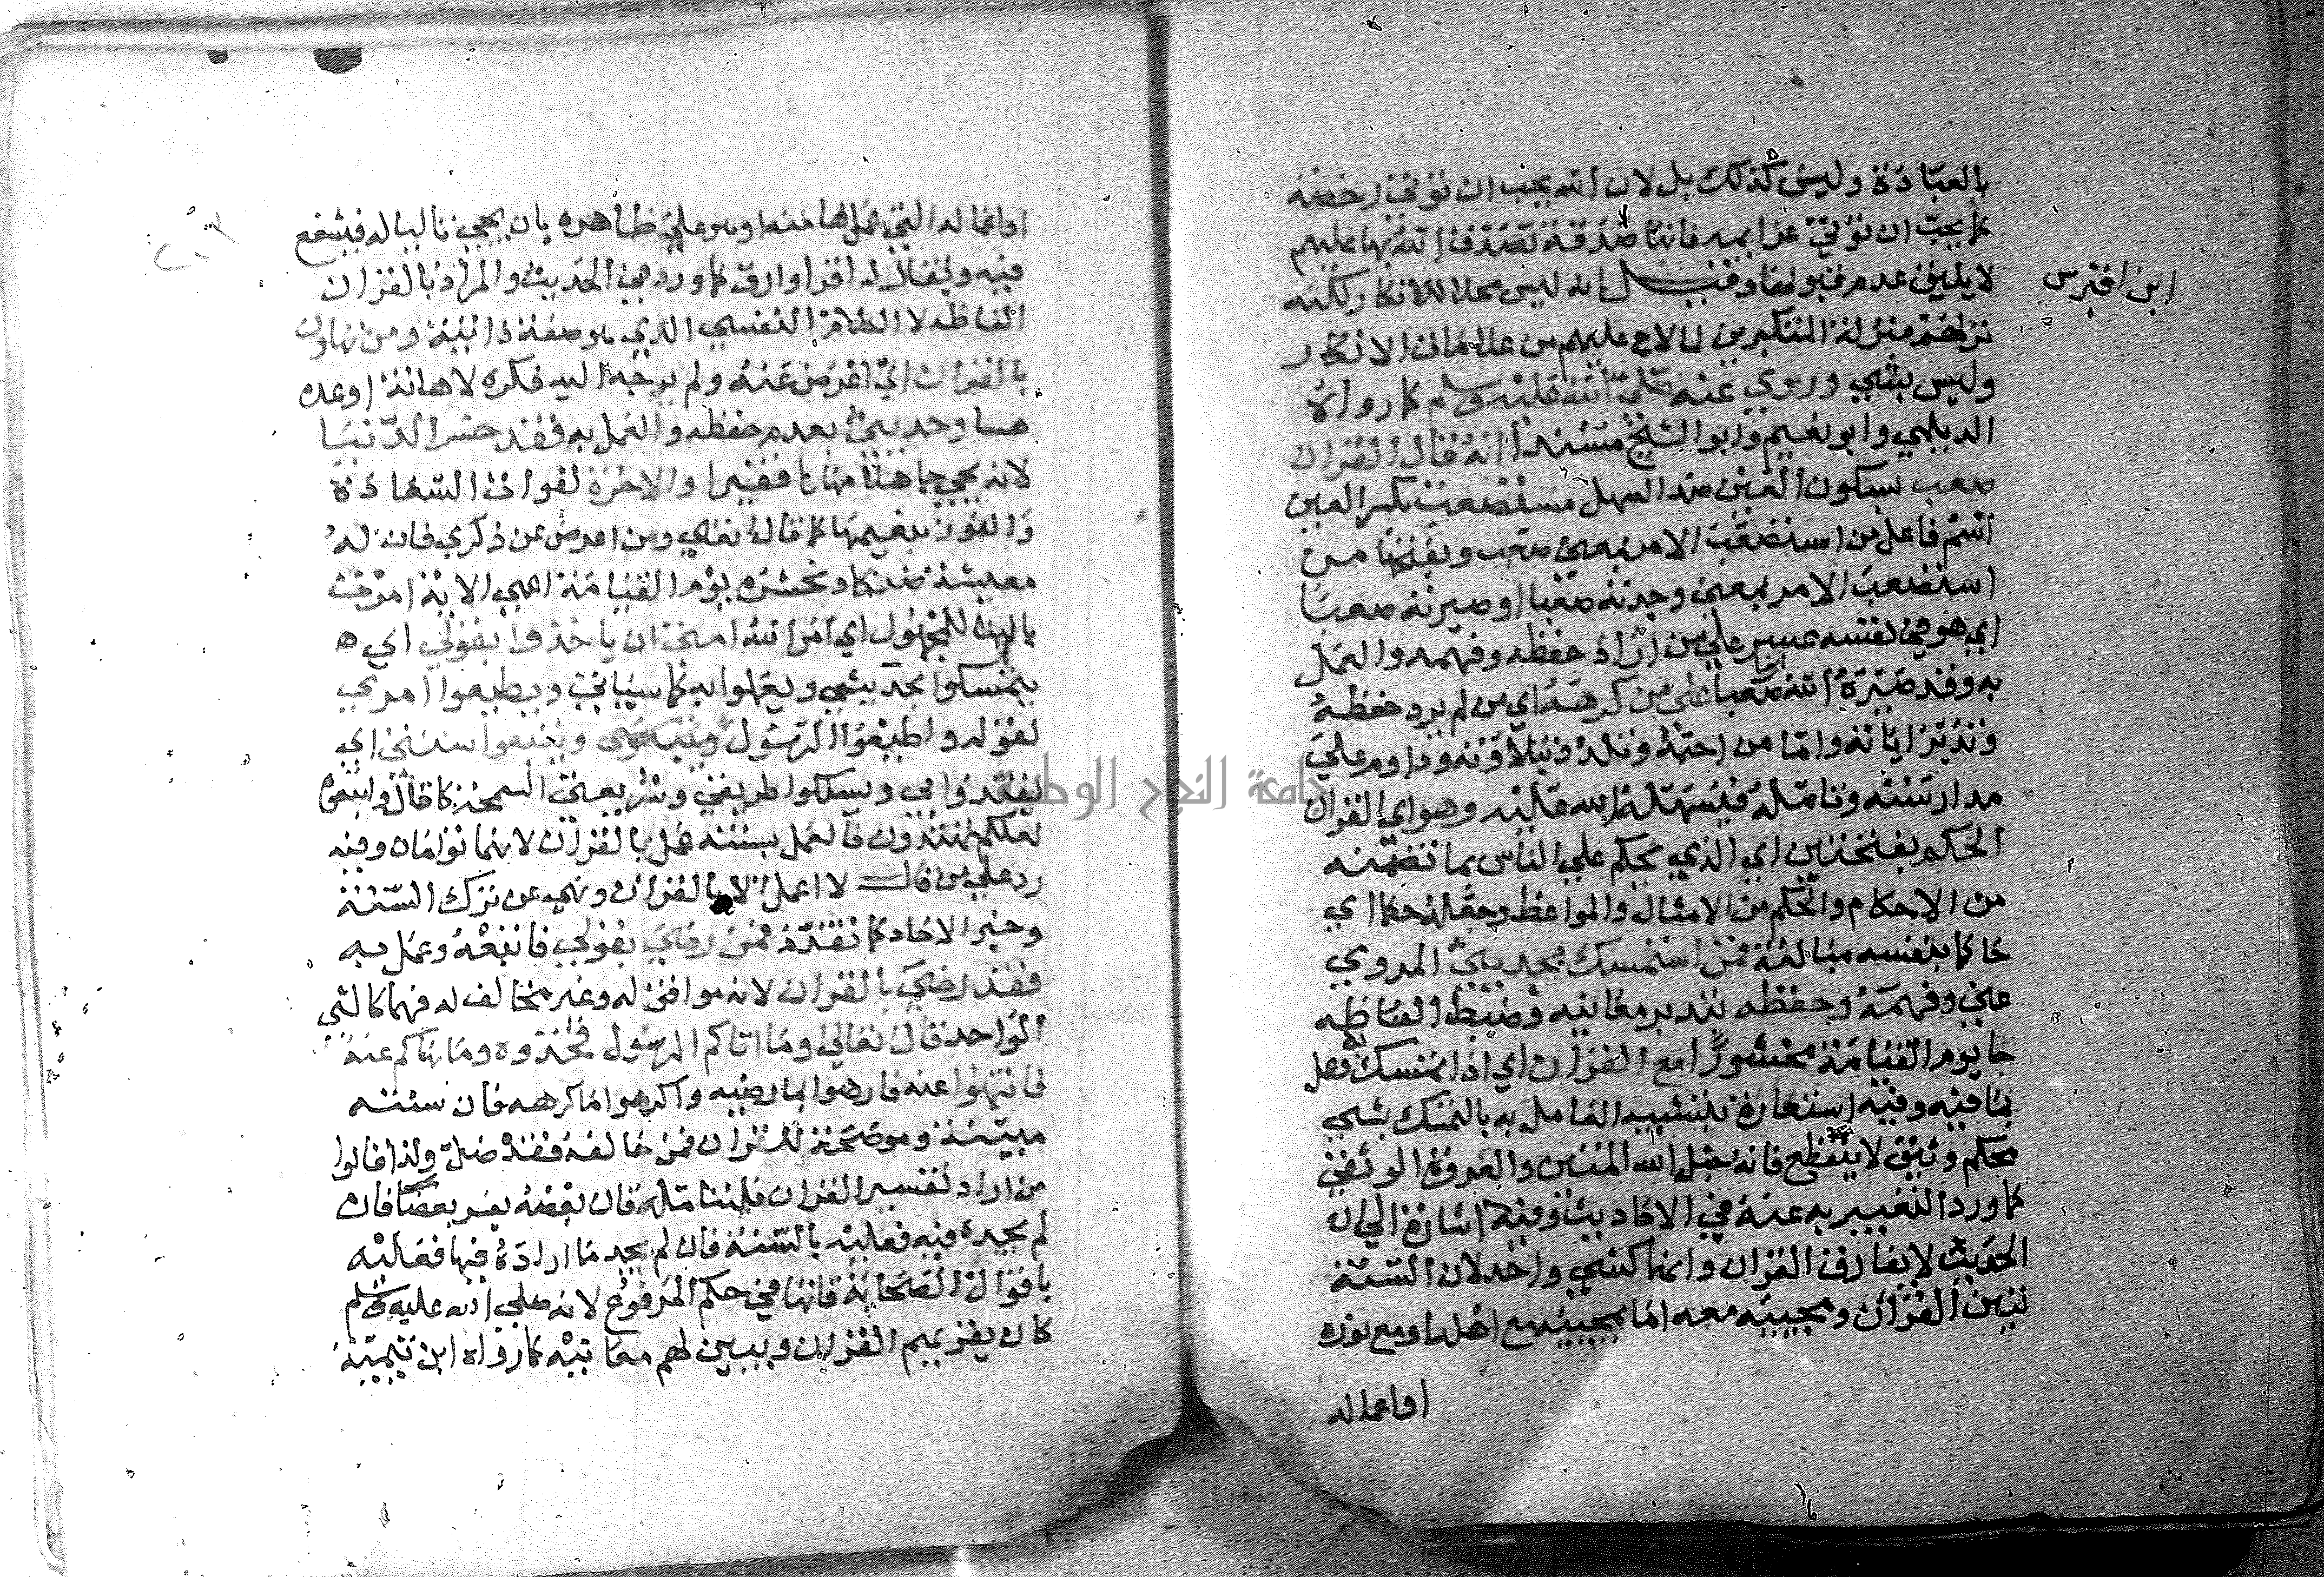 بالعبادة وليس كذلك بل لان الله يحب ان تؤتى رخصه
كما يحب ان تؤتى عزايمه فانها صدقة تصدق الله بها عليهم
لا يليق عدم قبولها وقيل انه ليس محلا للانكار لكنه
ابن اقبرس
نزلهم منزلة المنكرين لما لاح عليهم من علامات الانكار
وليس بشي وروي عنه صلى الله عليه وسلم كما رواه
الديلمي وابو نعيم وابو الشيخ مسندا انه قال القران
صعب بسكون العين ضد السهل مستصعب بكسر العين
اسم فاعل من استصعب الامر بمعنى صعب وبفتحها من
استصعب الامر بمعنى وجدته صعبا او صيرته صعبا
اي هو في نفسه عسير على من اراد حفظه وفهمه والعمل
به وقد صيره الله صعبا على من كرهه اي من لم يرد حفظه
وتدبر اياته واما من احبه وتلاوته وداوم على
مدارسته وتامله فيسهله الله عليه وهو اي القران
الحكم بفتحتين اي الذي يحكم على الناس بما تضمنه
من الاحكام والحكم من الامثال والمواعظ وجعله حكما اي
حاكما بنفسه مبالغة فمن استمسك بحديثي المروي
عني وفهمه وحفظه بتدبر معانيه وضبط الفاظه
جا يوم القيامة محشورا مع القران اي اذا تمسك وعمل
بما فيه وفيه استعارة بتشبيه العامل به بالتمسك بشي
محكم وثيق لا ينقطع فانه حبل الله المتين والعروة الوثقى
كما ورد التعبير به عنه في الاحاديث وفيه اشارة الى ان
الحديث لا يفارق القران وانهما كشي واحد لان السنة
تبين القران ومجيبه معه اما بمجيئه مع اهلها ومع نوره
او اعماله
او اعماله التي عملها منه او هو على ظاهره بان يجي تاليا له فيشفع
فيه ويقال له اقرا وارق كما ورد في الحديث والمراد بالقران
الفاظه لا الكلام النفسي الذي هو صفة ذاتية ومن تهاون
بالقران اي اعرض عنه ولم يوجه اليه فكره لاهانة او عده
هينا وحديثي بعدم حفظه والعمل به فقد خسر الدنيا
لانه يجي جاهلا مهانا فقيرا والاخرة لفوات السعادة
والفوز بنعيمها كما قال تعالى ومن اعرض عن ذكري فان له
معيشة ضنكا ونحشره يوم القيامة اعمى الاية امرت
بالبنا للمجهول اي امر الله امتي ان ياخذوا بقولي اي
يتمسكوا بحديثي ويعملوا به كما سياتي ويطيعوا امري
لقوله واطيعوا الرسول ويتبعوا سنتي اي
ليقتدوا بي ويسلكوا طريقتي وشريعتي السمحة كما قال واتبعوه
لعلكم تهتدون فالعمل بسنته عمل بالقران لانهما توامان وفيه
رد على من قال لا اعمل الا بالقران ونهي عن ترك السنة
وخبر الاحاد كما تقدم فمن رضي بقولي فاتبعه وعمل به
فقد رضي بالقران لانه موافق له وغير مخالف له فهما كالشي
الواحد قال تعالى وما اتاكم الرسول فخذوه وما نهاكم عنه
فانتهوا عنه فارضوا بما رضيه واكرهوا ما كرهه فان سنته
مبينة وموضحة للقران فمن خالفه فقد ضل ولذا قالوا
من اراد تفسير القران فليتامله فان بعضه يفسر بعضا فان
لم يجده فيه فعليه بالسنة فان لم يجد ما اراده فيها فعليه
باقوال الصحابة فانها في حكم المرفوع لانه صلى الله عليه وسلم
كان يقريهم القران ويبين لهم معانيه كما رواه ابن تيمية
جامعة النجاح الوط